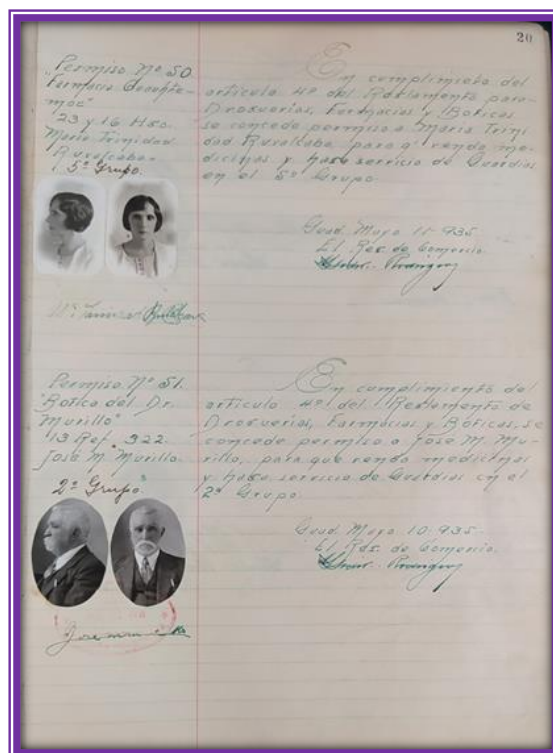 20
Permiso Nº 50.
"Farmacia Cuauhte-
moc"
23 y 16 Hgo.
María Trinidad
Ruvalcaba.
5º Grupo.
En cumplimiento del
artículo 4º del Reglamento para
Droguerías, Farmacias y Boticas
se concede permiso a María Trini
dad Ruvalcaba para q' venda me-
dicinas y haga servicio de Guardias
en el 5º Grupo.
Guad. Mayo 10-935.
El Reg. de Comercio.
Permiso Nº 51.
"Botica del Dr.
Murillo"
13 Ref. 322.
José M. Murillo.
2º Grupo.
En cumplimiento del
artículo 4º del Reglamento de
Droguerías, Farmacias y Boticas, se
concede permiso a José M. Mu-
rillo, para que venda medicinas
y haga servicio de Guardias en el
2º Grupo.
Guad. Mayo 10-935.
El Reg. de Comercio.